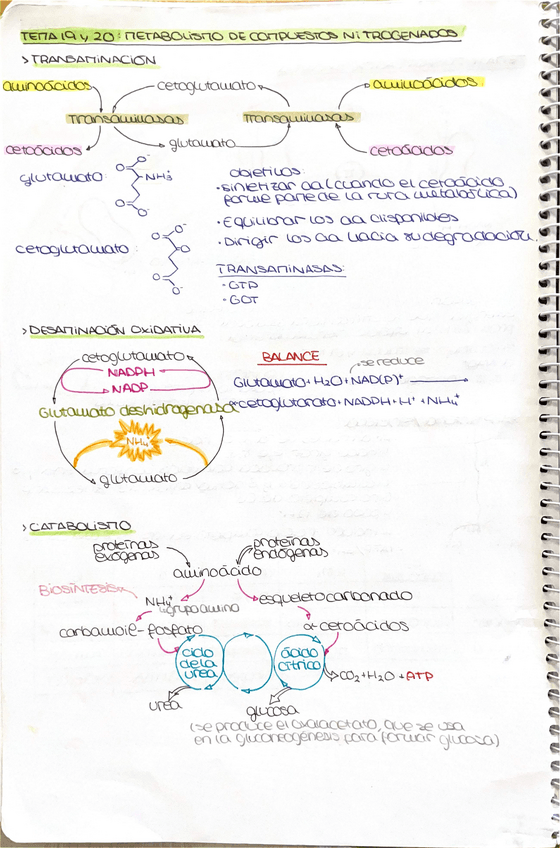 TEMA 19 y 20: METABOLISMO DE COMPUESTOS NITROGENADOS
> TRANSAMINACIÓN
aminoácidos cetoglutamato aminoácidos
Transaminasas Transaminasas
cetoácidos glutamato cetoácidos
glutamato:
O O⁻
NH₃⁺
O O⁻
cetoglutamato:
O O⁻
O
O O⁻
objetivos:
• sintetizar aa (cuando el cetoácido
forme parte de la ruta metabólica)
• Equilibrar los aa disponibles
• Dirigir los aa hacia su degradación.
TRANSAMINASAS:
- GTP
- GOT
> DESAMINACIÓN OXIDATIVA
cetoglutamato
NADPH
NADP
Glutamato deshidrogenasa
NH₄⁺
glutamato
BALANCE
se reduce
Glutamato + H₂O + NAD(P)⁺ →
α-cetoglutarato + NADPH + H⁺ + NH₄⁺
> CATABOLISMO
proteínas exógenas
proteínas endógenas
aminoácido
BIOSÍNTESIS
NH₄⁺
grupo amino
esqueleto carbonado
carbamoil-fosfato
α-cetoácidos
ciclo de la urea
ácido cítrico
CO₂ + H₂O + ATP
urea
glucosa
(se produce el oxalacetato, que se usa
en la gluconeogénesis para formar glucosa)